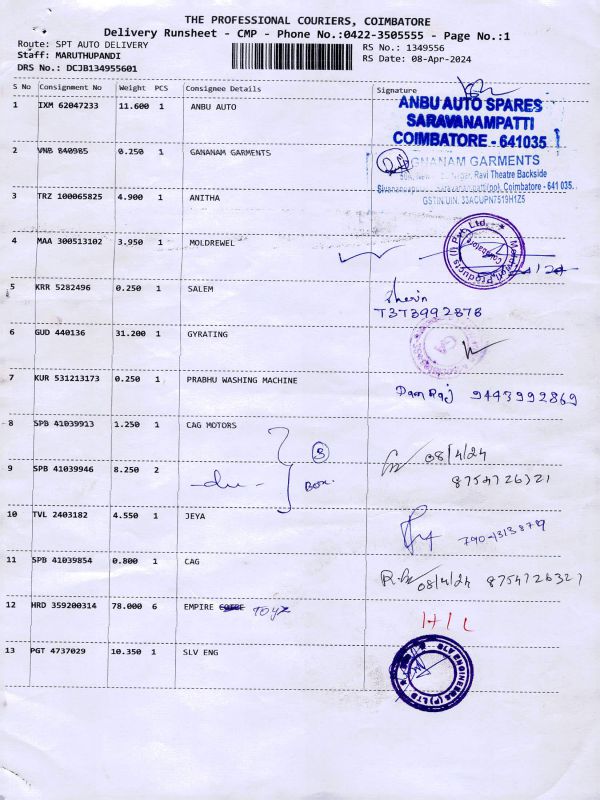 THE PROFESSIONAL COURIERS, COIMBATORE
Delivery Runsheet - CMP - Phone No.:0422-3505555 - Page No.:1
Route: SPT AUTO DELIVERY
Staff: MARUTHUPANDI
DRS No.: DCJB134955601
RS No.: 1349556
RS Date: 08-Apr-2024
S No Consignment No Weight PCS Consignee Details Signature
1 IXM 62047233 11.600 1 ANBU AUTO
ANBU AUTO SPARES
SARAVANAMPATTI
COIMBATORE - 641035
2 VNB 840985 0.250 1 GANANAM GARMENTS
GNANAM GARMENTS
Ravi Theatre Backside
Coimbatore - 641 035.
GSTIN/UIN. 33ACUPN7519H1Z5
3 TRZ 100065825 4.900 1 ANITHA
4 MAA 300513102 3.950 1 MOLDREWEL
5 KRR 5282496 0.250 1 SALEM
7373992878
6 GUD 440136 31.200 1 GYRATING
7 KUR 531213173 0.250 1 PRABHU WASHING MACHINE
9443992869
8 SPB 41039913 1.250 1 CAG MOTORS
3
08/4/24
9 SPB 41039946 8.250 2
-du- Box.
8754726321
10 TVL 2403182 4.550 1 JEYA
11 SPB 41039854 0.800 1 CAG
08/4/24 8754726321
12 HRD 359200314 78.000 6 EMPIRE
13 PGT 4737029 10.350 1 SLV ENG